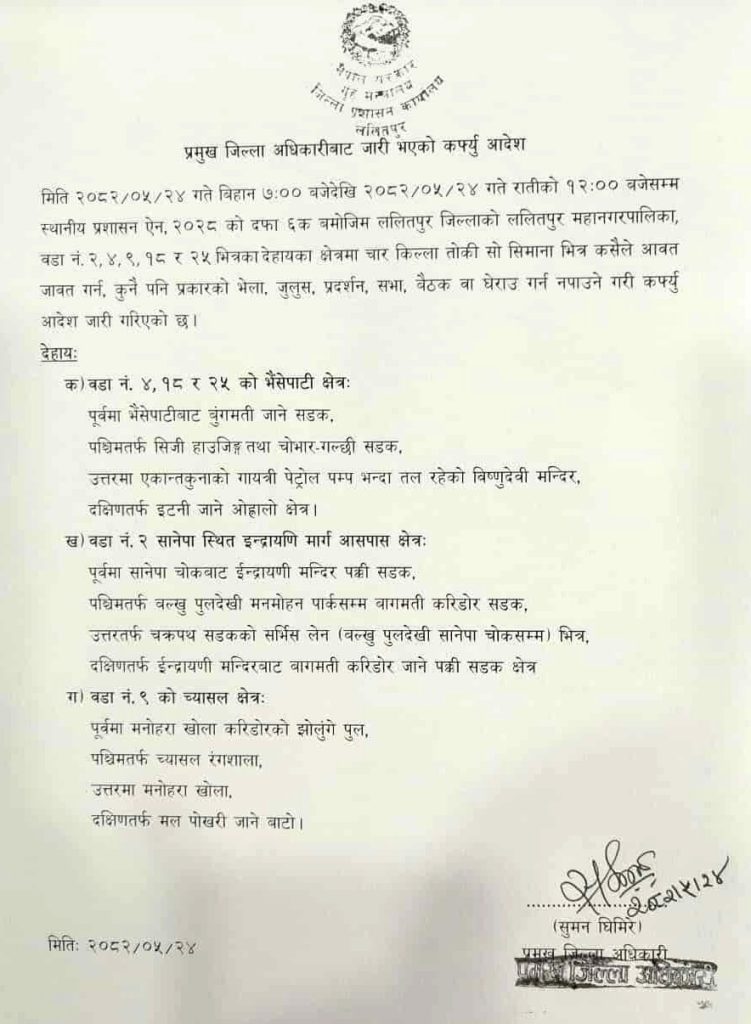 नेपाल सरकार
गृह मन्त्रालय
जिल्ला प्रशासन कार्यालय
ललितपुर
प्रमुख जिल्ला अधिकारीबाट जारी भएको कर्फ्यु आदेश
मिति २०८२/०५/२४ गते बिहान ७:०० बजेदेखि २०८२/०५/२४ गते रातीको १२:०० बजेसम्म
स्थानीय प्रशासन ऐन, २०२८ को दफा ६क बमोजिम ललितपुर जिल्लाको ललितपुर महानगरपालिका,
वडा नं. २, ४, ९, १८ र २५ भित्रका देहायका क्षेत्रमा चार किल्ला तोकी सो सिमाना भित्र कसैले आवत
जावत गर्न, कुनै पनि प्रकारको भेला, जुलुस, प्रदर्शन, सभा, बैठक वा घेराउ गर्न नपाउने गरी कर्फ्यु
आदेश जारी गरिएको छ।
देहायः
क) वडा नं. ४, १८ र २५ को भैंसेपाटी क्षेत्रः
पूर्वमा भैंसेपाटीबाट बुंगमती जाने सडक,
पश्चिमतर्फ सिजी हाउजिङ्ग तथा चोभार-गल्छी सडक,
उत्तरमा एकान्तकुनाको गायत्री पेट्रोल पम्प भन्दा तल रहेको विष्णुदेवी मन्दिर,
दक्षिणतर्फ इटनी जाने ओह्रालो क्षेत्र।
ख) वडा नं. २ सानेपा स्थित इन्द्रायणि मार्ग आसपास क्षेत्रः
पूर्वमा सानेपा चोकबाट ईन्द्रायणी मन्दिर पक्की सडक,
पश्चिमतर्फ वल्खु पुलदेखी मनमोहन पार्कसम्म वागमती करिडोर सडक,
उत्तरतर्फ चक्रपथ सडकको सर्भिस लेन (वल्खु पुलदेखी सानेपा चोकसम्म) भित्र,
दक्षिणतर्फ ईन्द्रायणी मन्दिरबाट वागमती करिडोर जाने पक्की सडक क्षेत्र
ग) वडा नं. ९ को च्यासल क्षेत्रः
पूर्वमा मनोहरा खोला करिडोरको झोलुंगे पुल,
पश्चिमतर्फ च्यासल रंगशाला,
उत्तरमा मनोहरा खोला,
दक्षिणतर्फ मल पोखरी जाने बाटो।
२०८२।५।२४
(सुमन घिमिरे)
मितिः २०८२/०५/२४
प्रमुख जिल्ला अधिकारी
प्रमुख जिल्ला अधिकारी